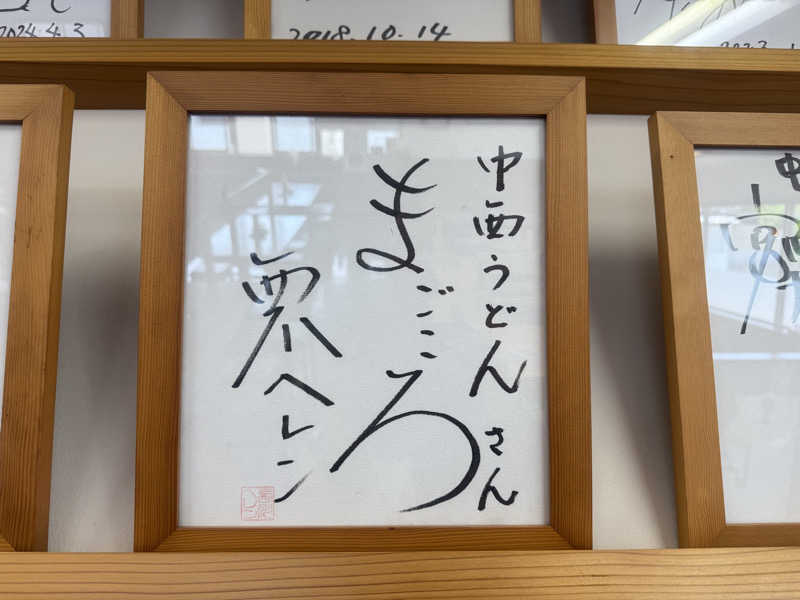 2024.4.3
2018.10.14
中西うどんさん
まごころ
栗八ヘレン